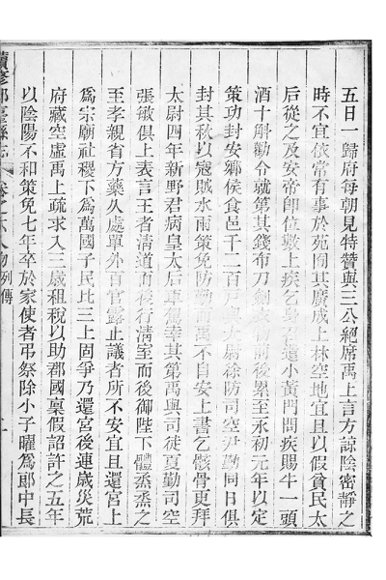 五日一歸府每朝見特贊與三公絕席禹上言方諒陰密靜之
時不宜依常有事於苑囿其廣成上林空地宜且以假貧民太
后從之及安帝即位數上疾乞身詔遣小黃門問疾賜牛一頭
酒十斛勸令就第其錢布刀劍衣物前後累至永初元年以定
策功封安鄉侯食邑千二百戶與太尉徐防司空尹勤同日俱
封其秋以寇賊水雨策免防勤而禹不自安上書乞骸骨更拜
太尉四年新野君病皇太后車駕幸其第禹與司徒夏勤司空
張敏俱上表言王者清道而後行清室而後御陛下體烝烝之
至孝親省方藥久處單外百官露止議者所不安宜且還宮上
為宗廟社稷下為萬國子民比三上固爭乃還宮後連歲災荒
府藏空虛禹上疏求入三歲租稅以助郡國稟假詔許之五年
以陰陽不和策免七年卒於家使者弔祭除小子曜為郎中長
續修邢臺縣志 卷之六人物列傳